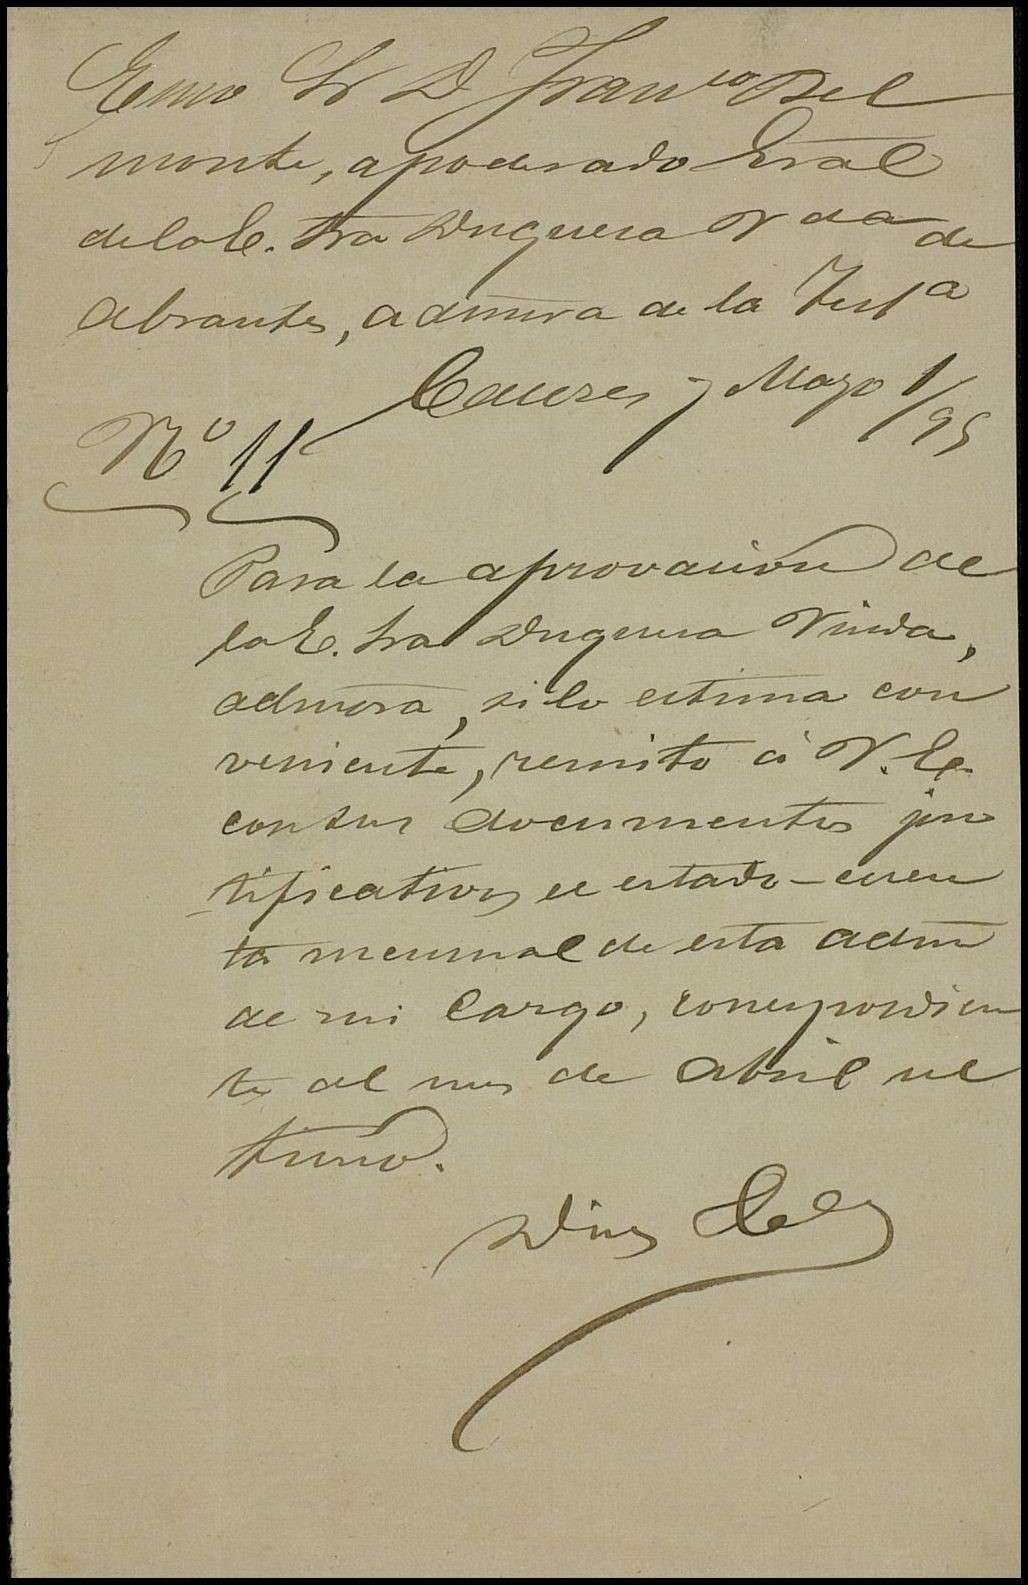 Exmo Sr D Franco Del
monte, apoderado Gral
de la E. Sra Duquesa Vda de
Abrantes, admora de la Testa
Caceres y Mayo 1/95
No 11
Para la aprovación de
la E. Sra Duquesa Viuda,
admora, si lo estima con
veniente, remito á V. E.
con sus documentos jus
tificativos el estado-cuen
ta mensual de esta admon
de mi cargo, correspondien
te al mes de Abril ul
timo.